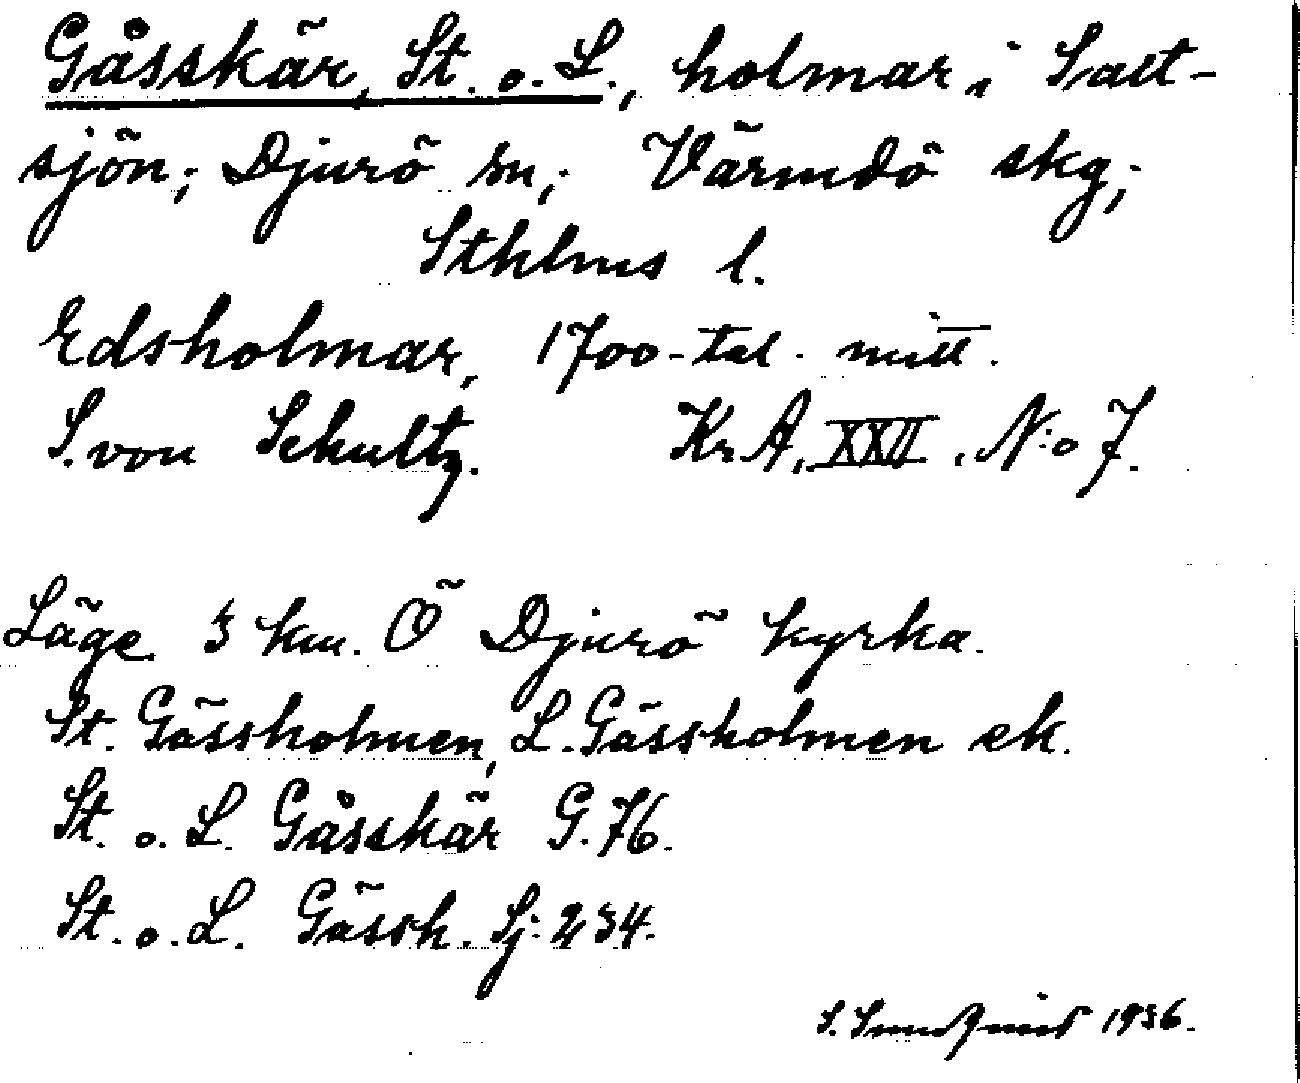 Gåsskär, St. o. L., holmar i Salt-
sjön; Djurö sn; Värmdö skg;
Sthlms l.
Edsholmar, 1700-tal. mitt.
S. von Schultz. Kr.A. XXII. N:o 7.
Läge 3 km. Ö Djurö kyrka.
St. Gässholmen, L. Gässholmen ek.
St. o. L. Gåsskär G. 76.
St. o. L. Gässh. Sj. 234.
S. Sundqvist 1936.